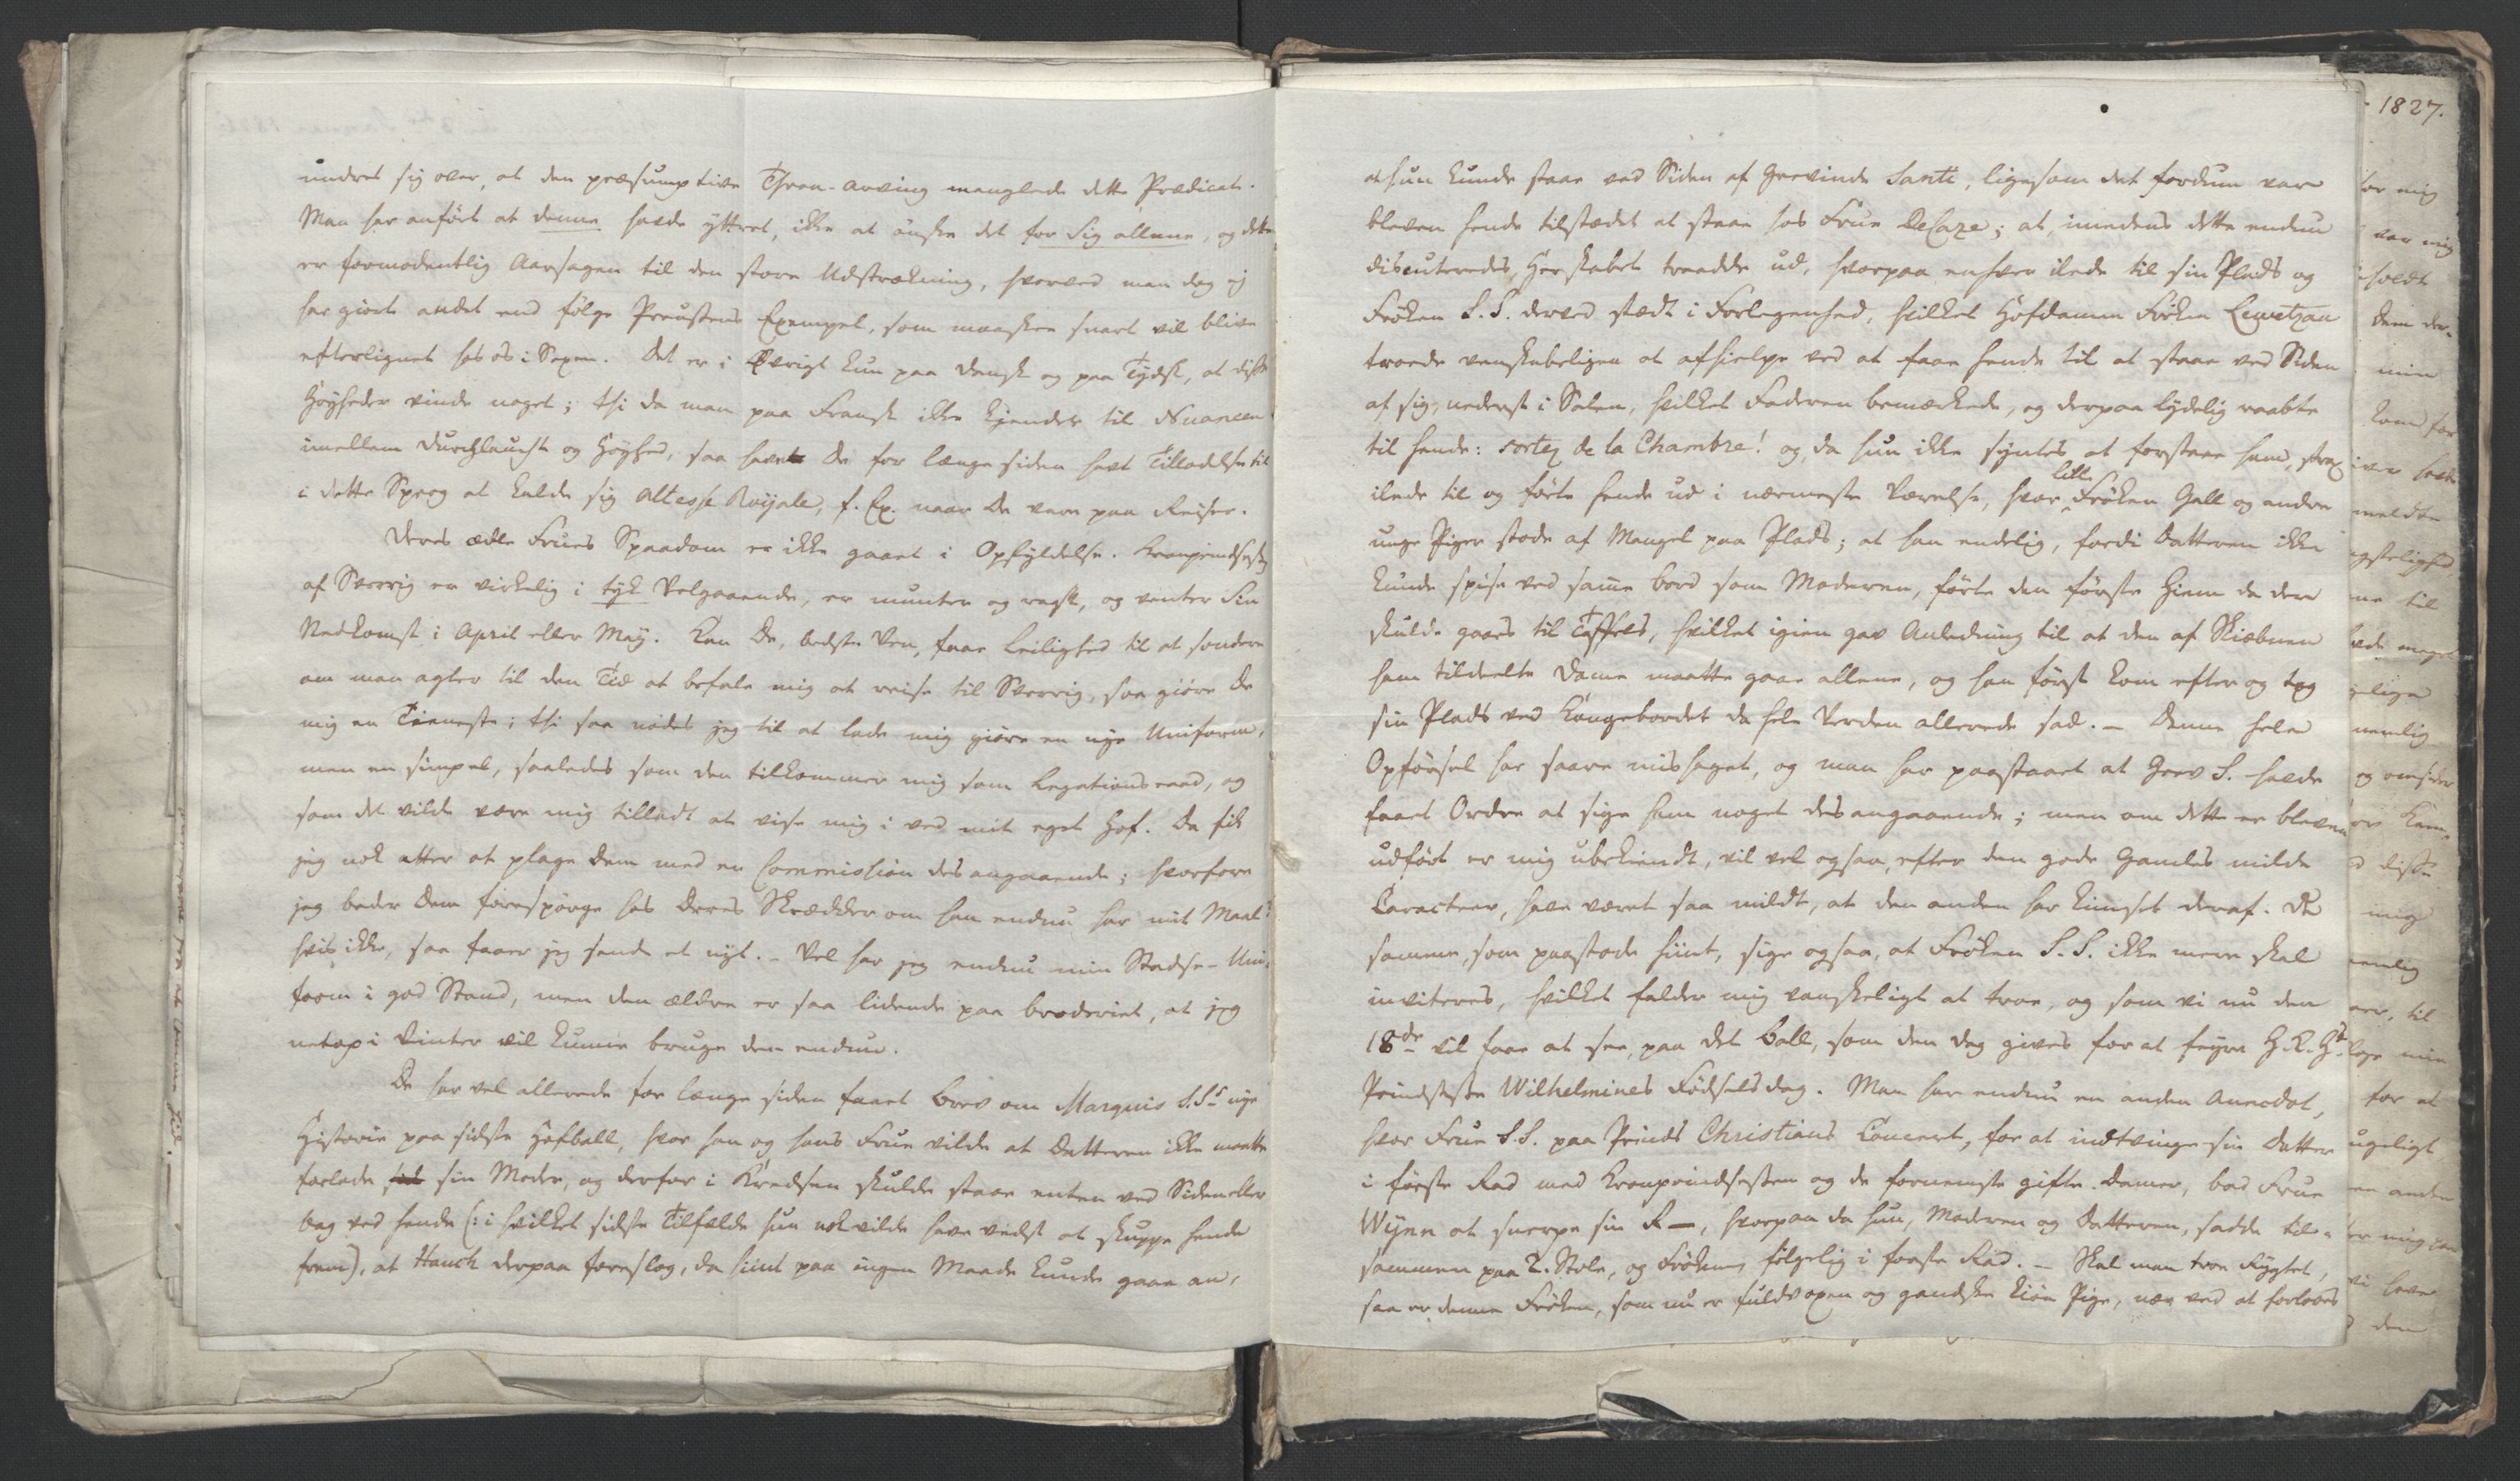 undret sig over, at den præsumptive Thron-Arving manglede dette Prædicat.
Man har anført at denne havde yttret, ikke at ønske det for Sig allene, og dette
er formodentlig Aarsagen til den store Udstrækning, hvorved man dog ej
har giort andet end følge Preussens Exempel, som maaskee snart vil blive
efterlignet hos os i Sexen. Det er i Øvrigt kun paa Dansk og paa Tydsk, at disse
Høyheder vinde noget; thi da man paa Fransk ikke kjender til Nuancen
imellem Durchlaucht og Høyhed, saa have De for længe siden havt Tilladelse til
i dette Sprog at kalde sig Altesse Royale, f. Ex. naar De vare paa Reiser.
Deres ædle Frues Spaadom er ikke gaaet i Opfyldelse. Kronprindsessen
af Sverrig er virkelig i tyk Velgaaende, er munter og rask, og venter Sin
Nedkomst i April eller May. Kan De, bedste Ven, faae Leilighed til at sondere
om man agter til den Tid at befale mig at reise til Sverrig, saa giøre De
mig en Tieneste; thi saa nødes jeg til at lade mig giøre en nye Uniform,
men en simpel, saaledes som den tilkommer mig som Legationsraad, og
som det vilde være mig tilladt at vise mig i ved mit eget Hof. Da fik
jeg nok atter at plage Dem med en Commission desangaaende; hvorfore
jeg beder Dem forespørge hos Deres Skrædder om han endnu har mit Maal?
hvis ikke, saa faaer jeg sende et nyt. - Vel har jeg endnu min Stadse-Uni-
form i god Stand, men den ældre er saa lidende paa broderiet, at jeg
netop i Vinter vil kunne bruge den endnu.
De har vel allerede for længe siden faaet Brev om Marquis S. S.s nye
Historie paa sidste Hofball, hvor han og hans Frue vilde at Datteren ikke maatte
forlade sin Moder, og derfor i Kredsen skulde staae enten ved Siden eller
bag ved hende (: i hvilket sidste Tilfælde hun nok vilde have vidst at skuppe hende
frem), at Hauch derpaa foreslog, da hiint paa ingen Maade kunde gaae an,
at hun kunde staae ved Siden af Grevinde Santi, ligesom det fordum vare
bleven hende tilstædet at staae hos Frue DeCaze; at, imedens dette endnu
discuteredes, Herskabet traadde ud, hvorpaa enhver ilede til sin Plads og
Frøken S. S. derved stædt i Forlegenhed, hvilket Hofdamen Frøken Lewetzau
troede venskabeligen at afhielpe ved at faae hende til at staae ved Siden
af sig, nederst i Salen, hvilket Faderen bemærkede, og derpaa lydelig raabte
til hende: sortez de la Chambre! og, da hun ikke syntes at forstaae ham, strax
ilede til og førte hende ud i nærmeste Værelse, hvor lille Frøken Gall og andre
unge Piger stode af Mangel paa Plads; at han endelig, fordi Datteren ikke
kunde spise ved samme bord som Moderen, førte den første Hiem da der
skulde gaaes til Taffels, hvilket igien gav Anledning til at den af Skiæbnen
ham tildeelte Dame maatte gaae allene, og han først kom efter og tog
sin Plads ved Kongebordet da hele Verden allerede sad. - Denne hele
Opførsel har saare mishaget, og man har paastaaet at Grev S. havde
faaet Ordre at sige ham noget desangaaende; men om dette er bleven
udført er mig ubekiendt, vil vel ogsaa, efter den gode Gamles milde
Caracteer, have været saa mildt, at den anden har kimset deraf. De
samme, som paastode hiint, sige ogsaa, at Frøken S. S. ikke mere skal
inviteres, hvilket falder mig vanskeligt at troe, og som vi nu den
18de vil faae at see, paa det Ball, som den Dag gives for at feyre H. K. Hds
Prindsesse Wilhelmines Fødselsdag. Man har endnu en anden Anecdot,
hvor Frue S. S. paa Prinds Christians Concert, for at indtvinge sin Datter
i første Rad med Kronprindsessen og de fornemste gifte Damer, bad Frue
Wynn at snerpe sin R—, hvorpaa da hun, Moderen og Datteren, sadde til-
sammen paa 2. Stole, og Frøkenen følgelig i første Rad. - Skal man troe Rygtet,
saa er denne Frøken, som nu er fuldvoxen og gandske kiøn Pige, nær ved at forloves
1827.
for mig
var mig
holdt
Dem der-
min
kom for
havde
meldte
til
meget
nemlig
og omsider
disse
mig
nemlig
til
min
for at
anden
have
den